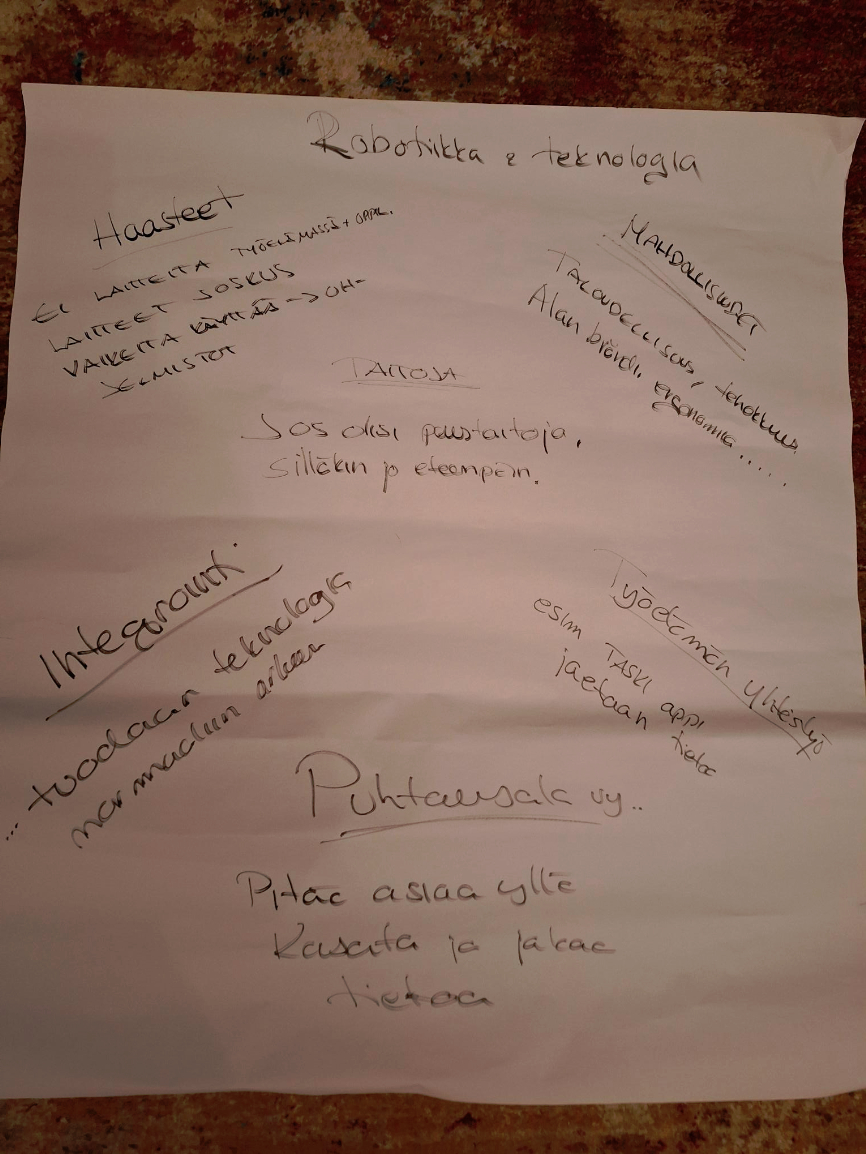 Robotiikka & teknologia
Haasteet
EI LAITTEITA TYÖELÄMÄSSÄ + OPPIL.
LAITTEET JOSKUS
VAIKEITA KÄYTTÄÄ -> OH-
JELMISTOT
MAHDOLLISUUDET
TALOUDELLISUUS, tehokkuus
Alan brändi, ergonomia ......
TAITOJA
Jos olisi perustaitoja,
silläkin jo eteenpäin.
Integrointi
... tuodaan teknologia
normaaliin arkeen
Työelämän yhteistyö
esim TASKI appi
jaetaan tietoa
Puhtausala ry..
Pitää asiaa yllä
Kasata ja jakaa
tietoa